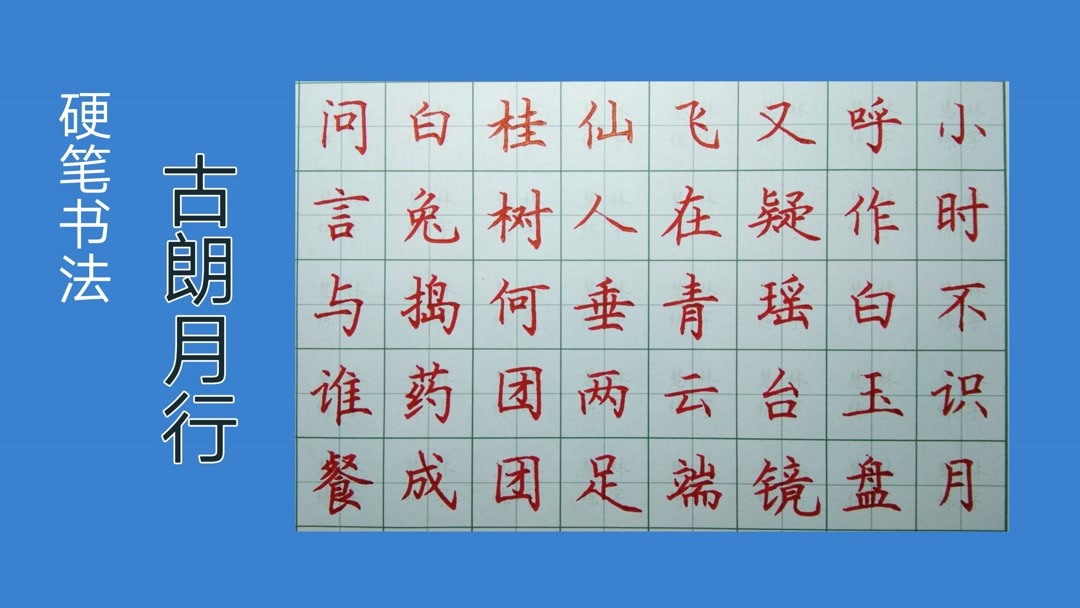 硬笔书法
古朗月行
小时不识月
呼作白玉盘
又疑瑶台镜
飞在青云端
仙人垂两足
桂树何团团
白兔捣药成
问言与谁餐